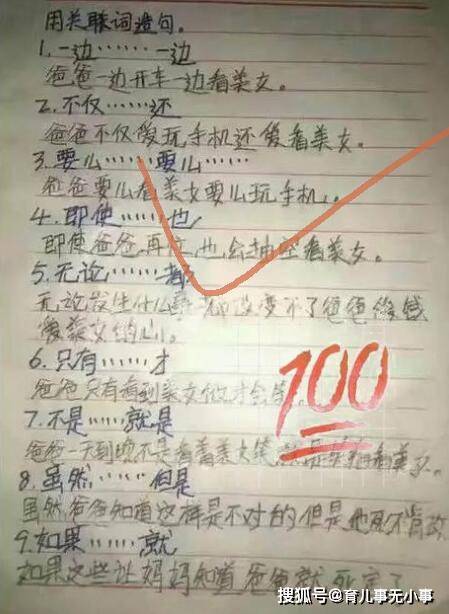 用关联词造句。
1.一边……一边
爸爸一边开车一边看美女。
2.不仅……还
爸爸不仅爱玩手机还爱看美女。
3.要么……要么……
爸爸要么看美女要么玩手机。
4.即使……也
即使爸爸再忙,也会抽空看美女。
5.无论……都
无论发生什么事都改变不了爸爸
爱美女的心。
6.只有……才
爸爸只有看到美女他才会笑。
7.不是……就是
爸爸一天到晚不是看着美女笑,就是看美
8.虽然……但是
虽然爸爸知道这样是不对的但是他死不肯改
9.如果……就
如果这些让妈妈知道爸爸就死定了
100
搜狐号@育儿事无小事